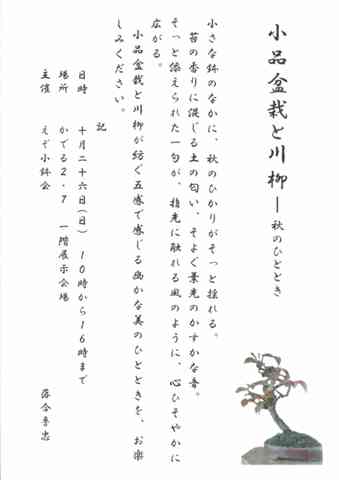 小品盆栽と川柳―秋のひととき
小さな鉢のなかに、秋のひかりがそっと揺れる。
苔の香りに混じる土の匂い、そよぐ葉先のかすかな音。
そっと添えられた一句が、指先に触れる風のように、心ひそやかに
広がる。
小品盆栽と川柳が紡ぐ五感で感じる幽かな美のひとときを、お楽
しみください。
記
日時 十月二十六日(日) 10時から16時まで
場所 かでる2・7 一階展示会場
主催 えぞ小鉢会
落合